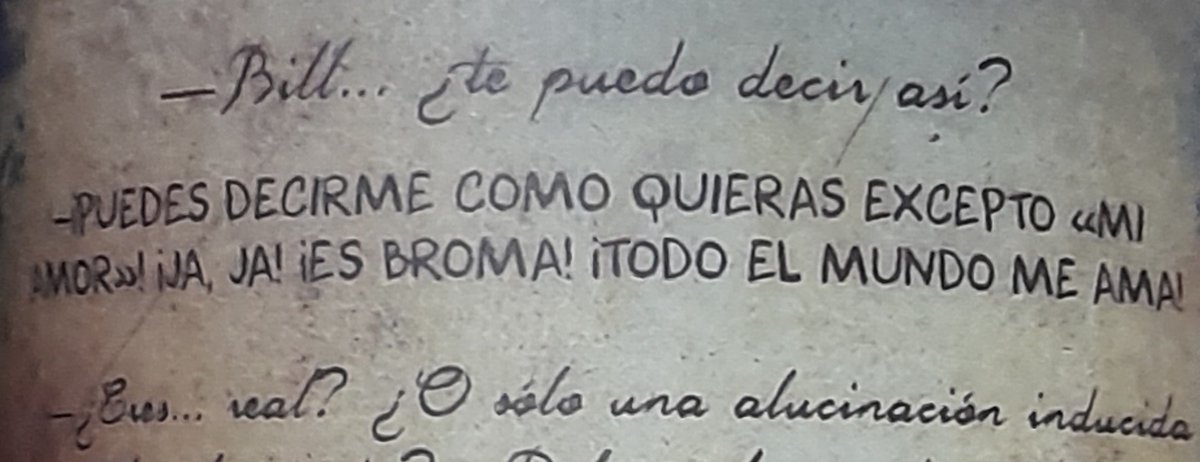 —Bill... ¿te puedo decir así?
-¡PUEDES DECIRME COMO QUIERAS EXCEPTO «MI
AMOR»! ¡JA, JA! ¡ES BROMA! ¡TODO EL MUNDO ME AMA!
-¿Eres... real? ¿O sólo una alucinación inducida